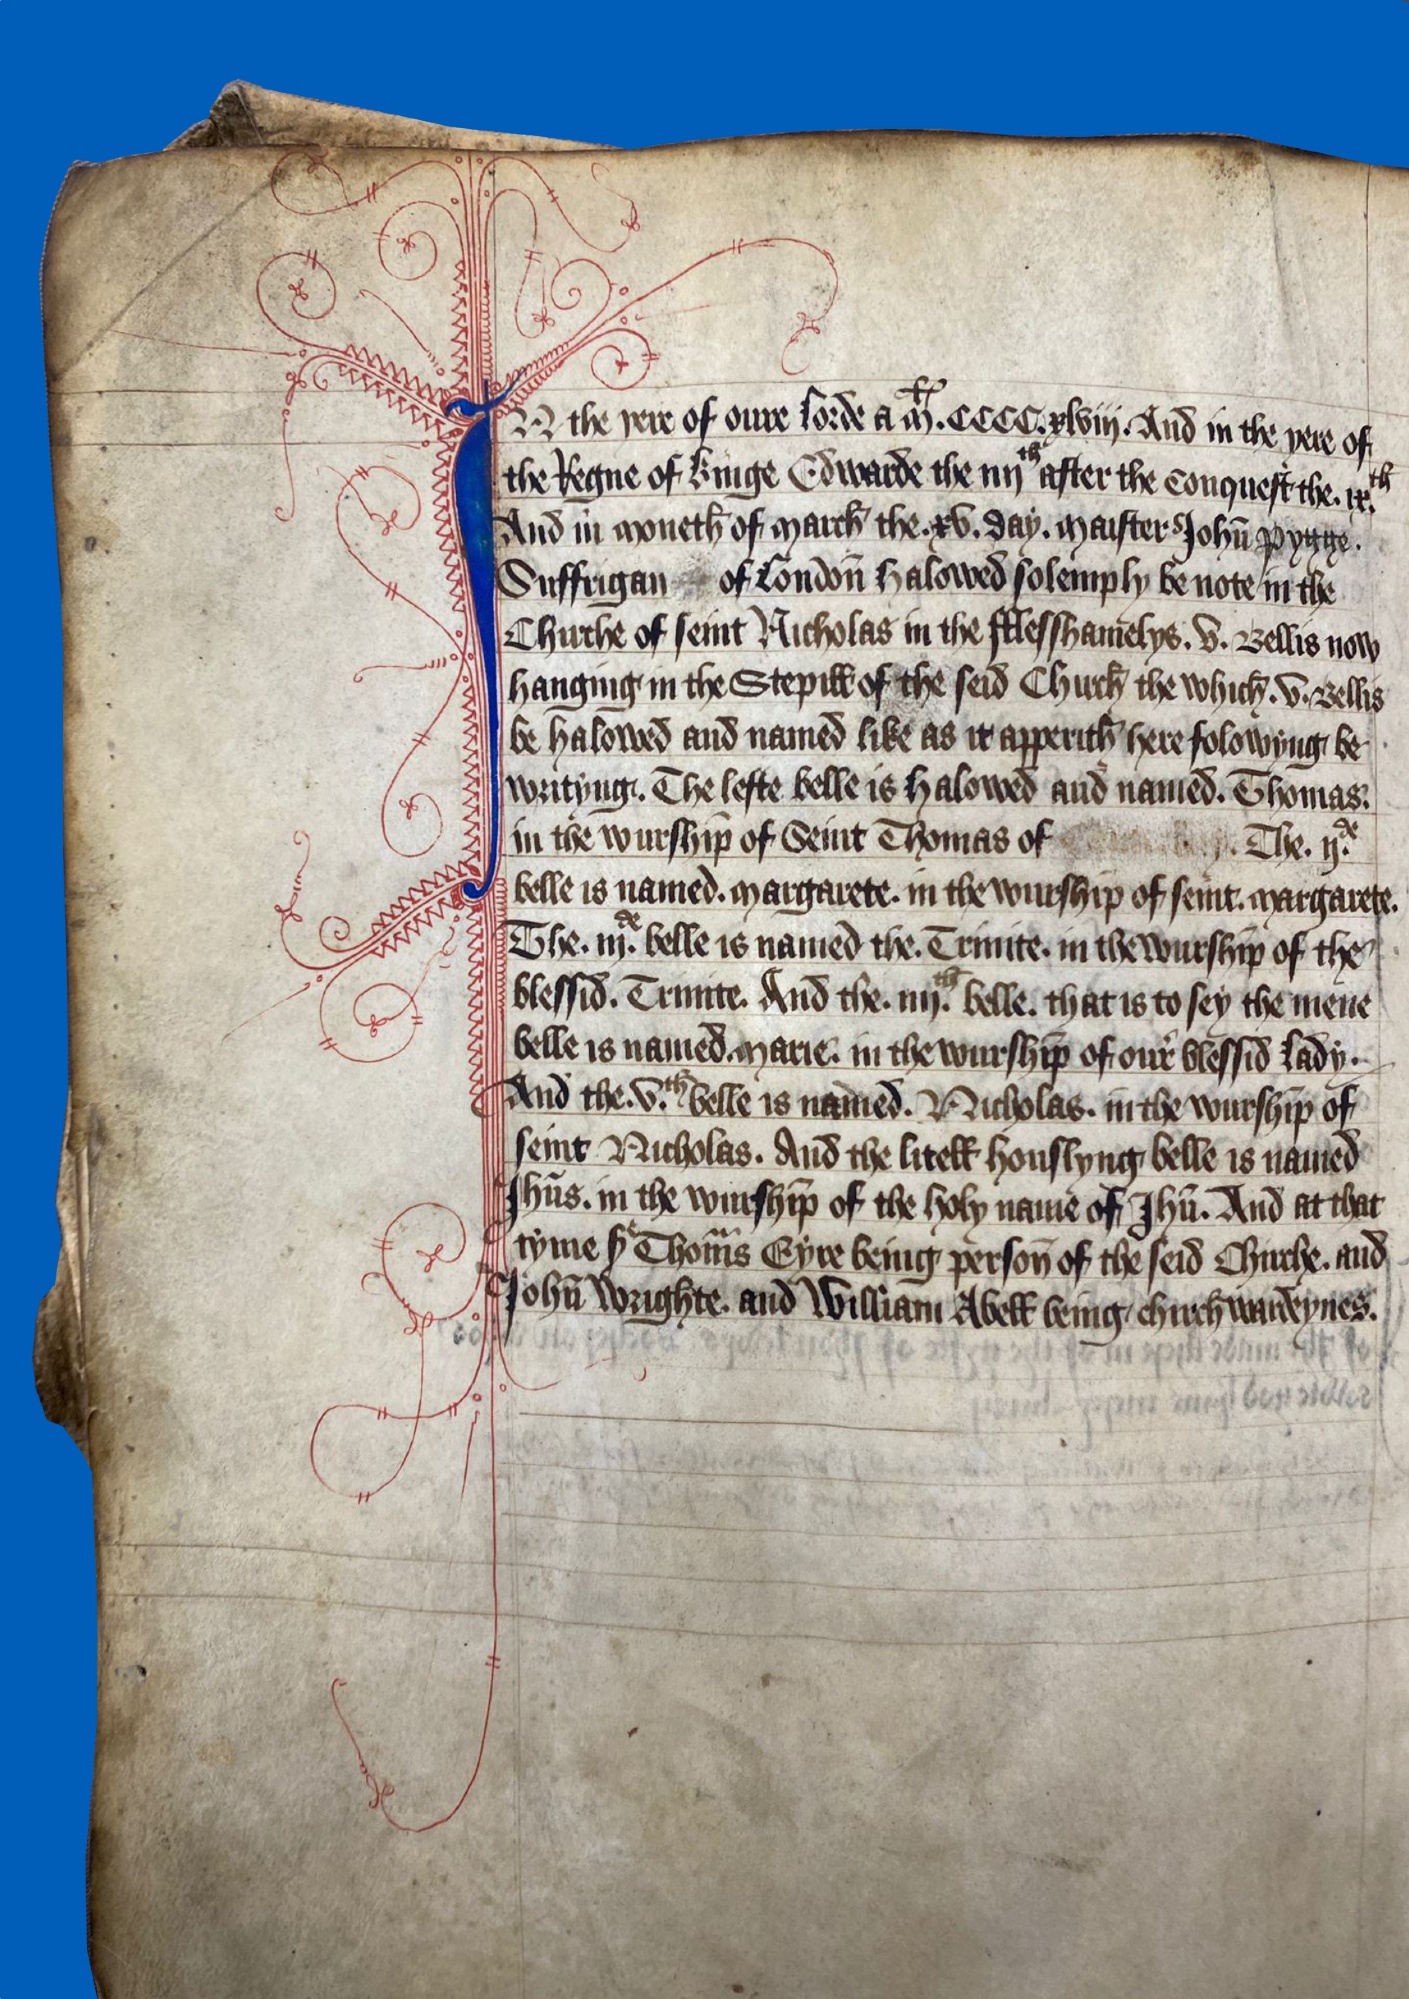 IN the yere of oure lorde a M̄. CCCC. xlviij. And in the yere of
the Regne of kinge Edwarde the iiijth after the conquest the. ix.th
And in moneth of march the. xv. day. maister John̄ Pygge.
Suffrigan of London̄ halowed solemply be note in the
Churche of seint Nicholas in the fflesshamelys. v. Bellis now
hanging in the Stepill of the seid Church the which. v. Bellis
be halowed and named like as it apperith here folowyng be
writyng. The leste belle is halowed and named. Thomas.
in the wurship̄ of Seint Thomas of The. ij.de
belle is named. Margarete. in the wurship of seint. Margarete.
The. iij.de belle is named the. Trinite. in the wurship of the
blessid. Trinite. And the. iiij.th belle. that is to sey the mene
belle is named. Marie. in the wurship̄ of our blessid lady.
And the. v.th belle is named. Nicholas. in the wurship̄ of
seint Nicholas. And the litell houslyng belle is named
Jhūs. in the wurship̄ of the holy name of Jhū. And at that
tyme sr Thom̄s Eyre being person̄ of the seid Churche. and
John̄ Wrighte. and William Abell being churchwardeynes.